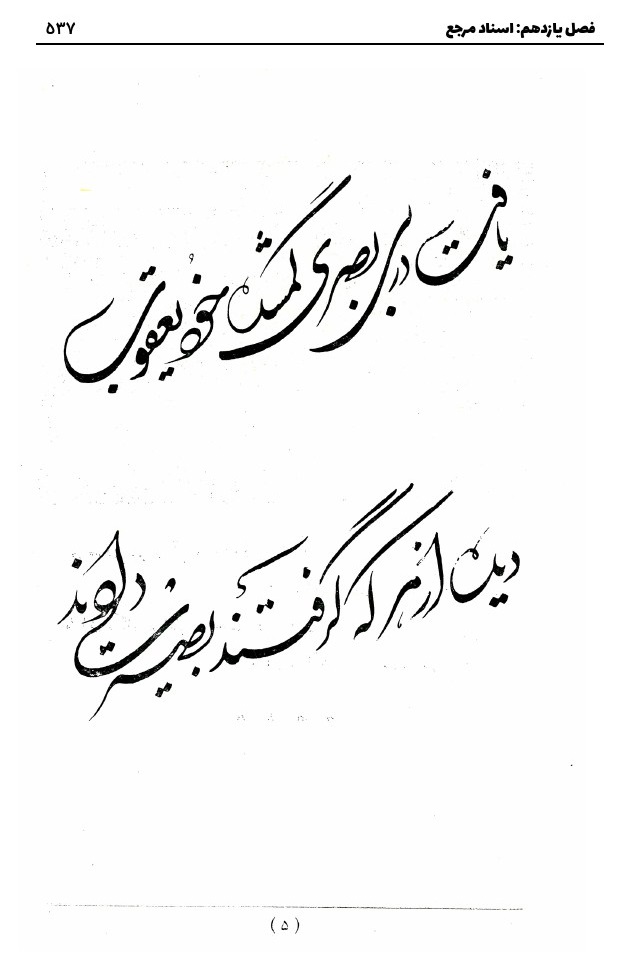 فصل یازدهم: اسناد مرجع ۵۳۷
یافت در بی بصری گمشده خود یعقوب
دیده از هر که گرفتند بصیرت دادند
(۵)